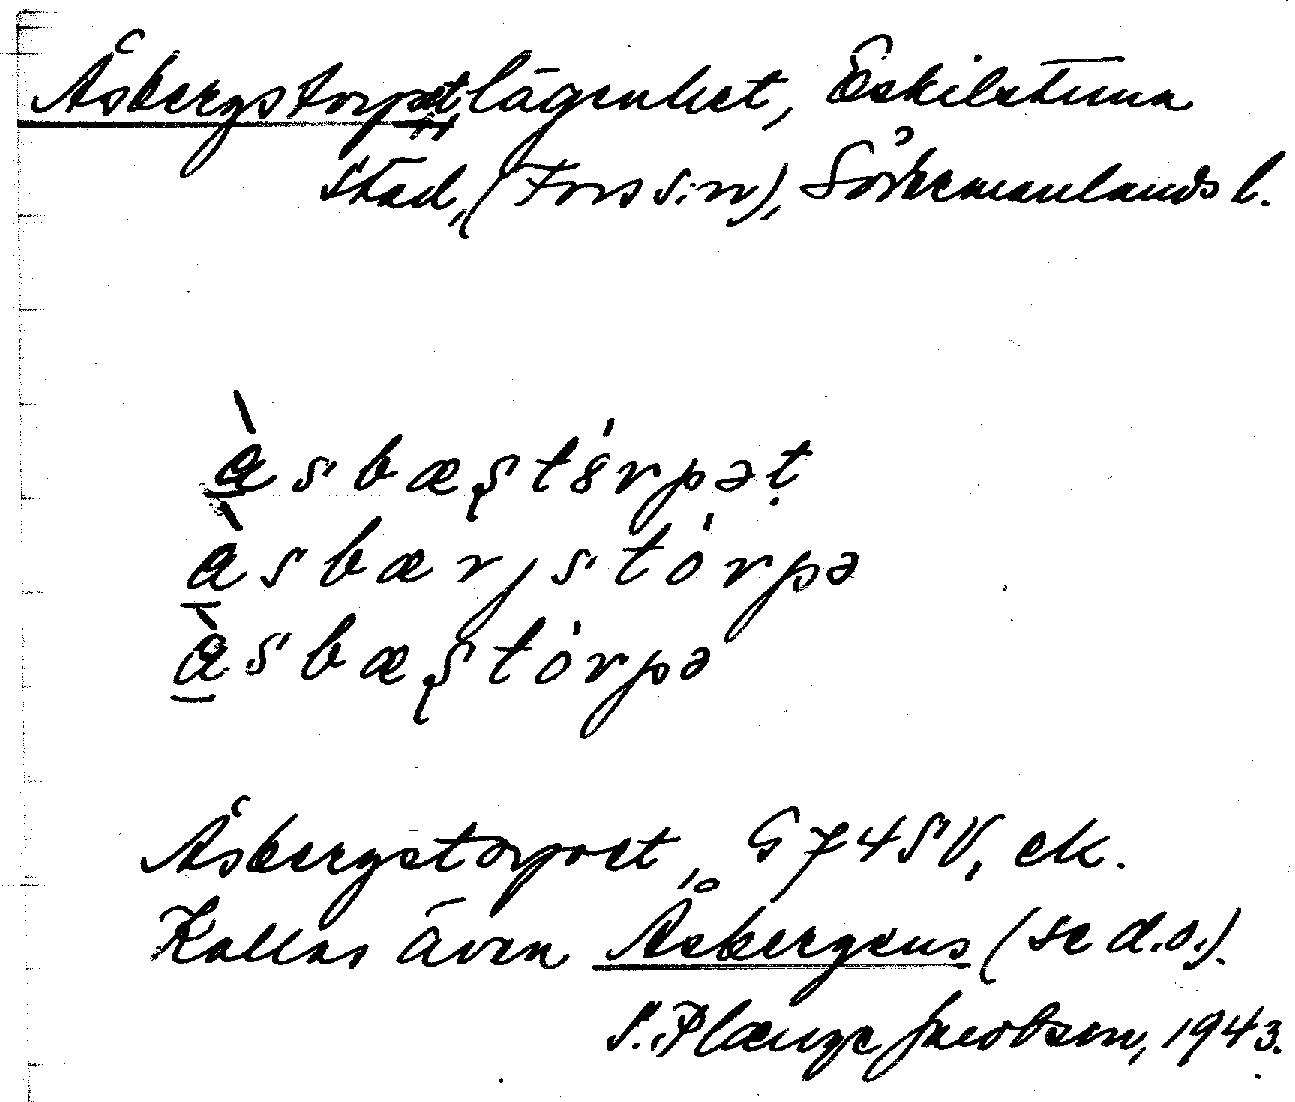 Åsbergstorpet, lägenhet, Eskilstuna
stad, (Fors s:n), Södermanlands l.
à̱sbæʂtórpət̩
à̱sbærjstórpə
à̱sbæʂtórpə
Åsbergstorpet, G74SV, ek.
Kallas även Åsbergens (se d.o.).
S. Plænge Jacobson, 1943.